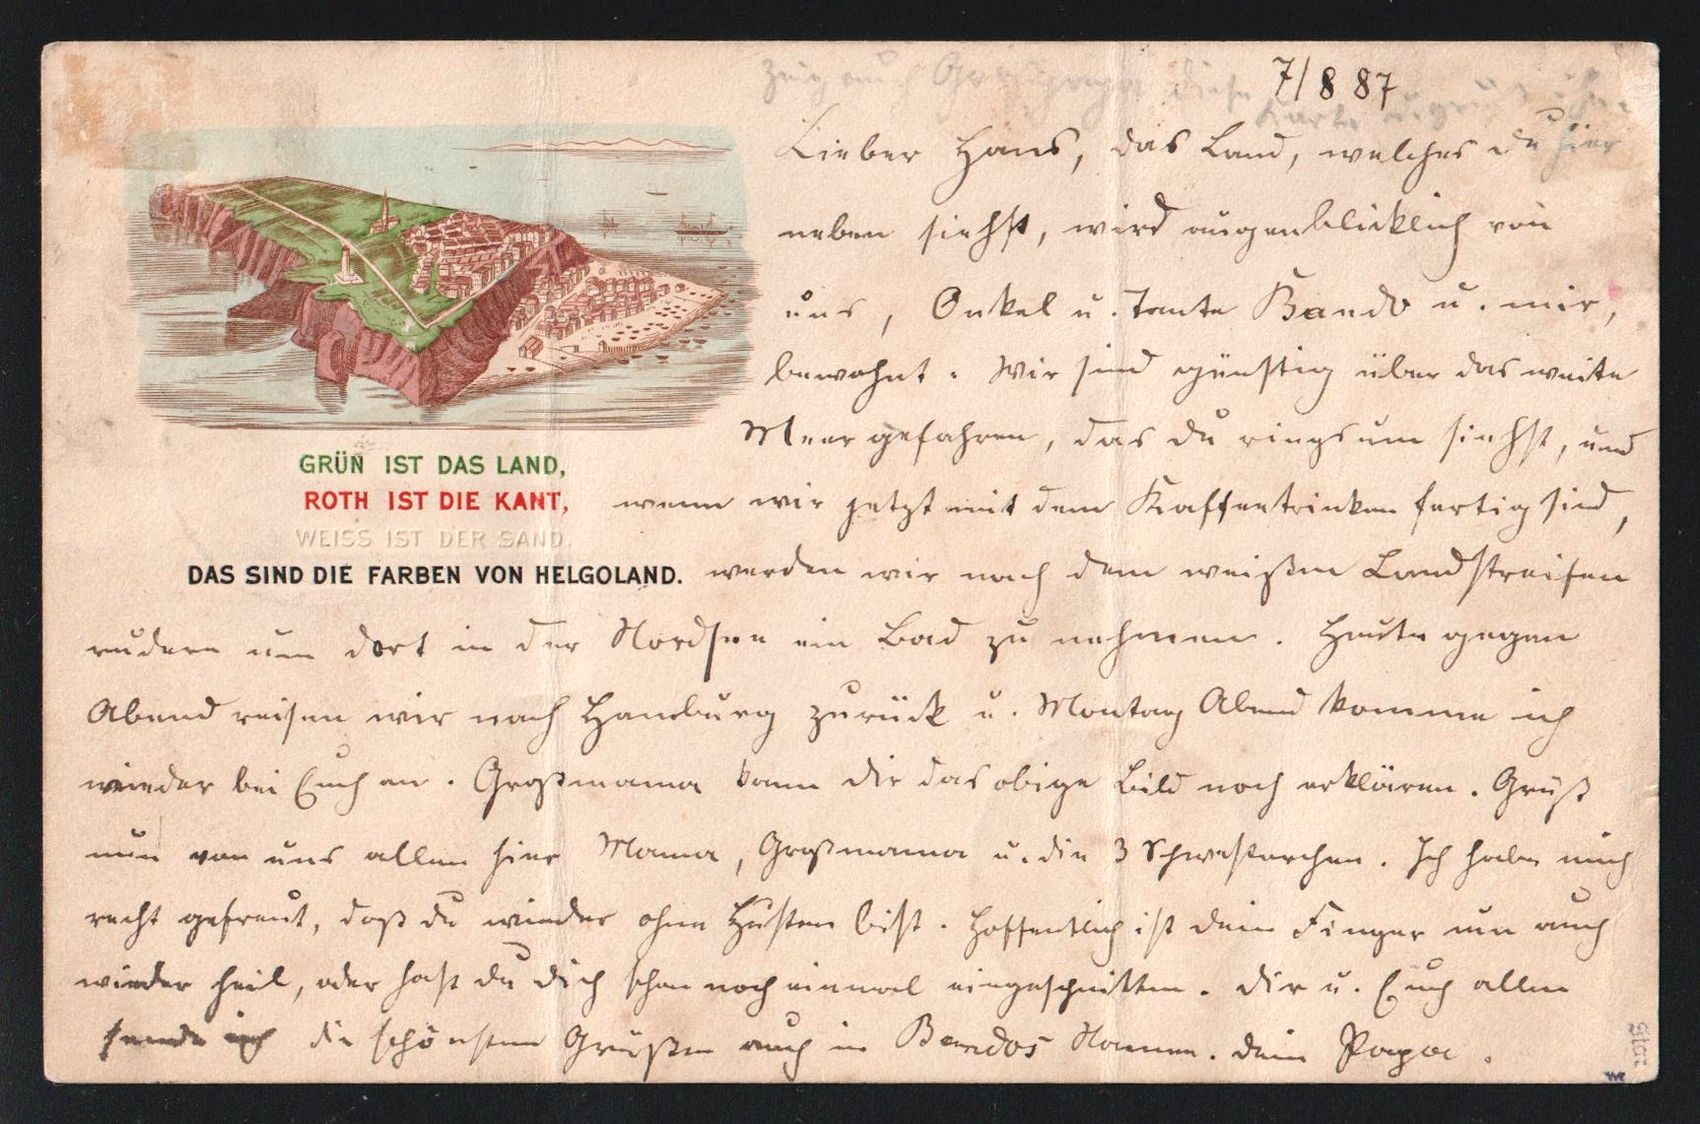 7/8 87
Zeig auch Großpapa diese
Karte u. grüß ihn
Lieber Hans, das Land, welches du hier
neben siehst, wird augenblicklich von
uns, Onkel u. Tante Bando u. mir,
bewohnt. Wir sind günstig über das weite
Meer gefahren, das du ringsum siehst, und
GRÜN IST DAS LAND,
ROTH IST DIE KANT,
WEISS IST DER SAND,
DAS SIND DIE FARBEN VON HELGOLAND.
wenn wir jetzt mit dem Kaffeetrinken fertig sind,
werden wir nach dem weißen Landstreifen
rudern um dort in der Nordsee ein Bad zu nehmen. Heute gegen
Abend reisen wir nach Hamburg zurück u. Montag Abend komme ich
wieder bei Euch an. Großmama kann dir das obige Bild noch erklären. Grüß
nun von uns allen hier Mama, Großmama u. die 3 Schwesterchen. Ich habe mich
recht gefreut, daß du wieder ohne Husten bist. Hoffentlich ist dein Finger nun auch
wieder heil, oder hast du dich schon noch einmal eingeschnitten. Dir u. Euch allen
sende ich die schönsten Grüßen auch in Bandos Namen. Dein Papa.